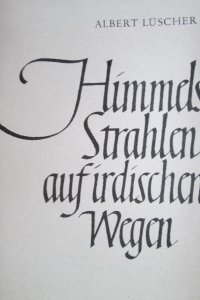 ALBERT LÜSCHER
Himmels
Strahlen
auf irdischen
Wegen